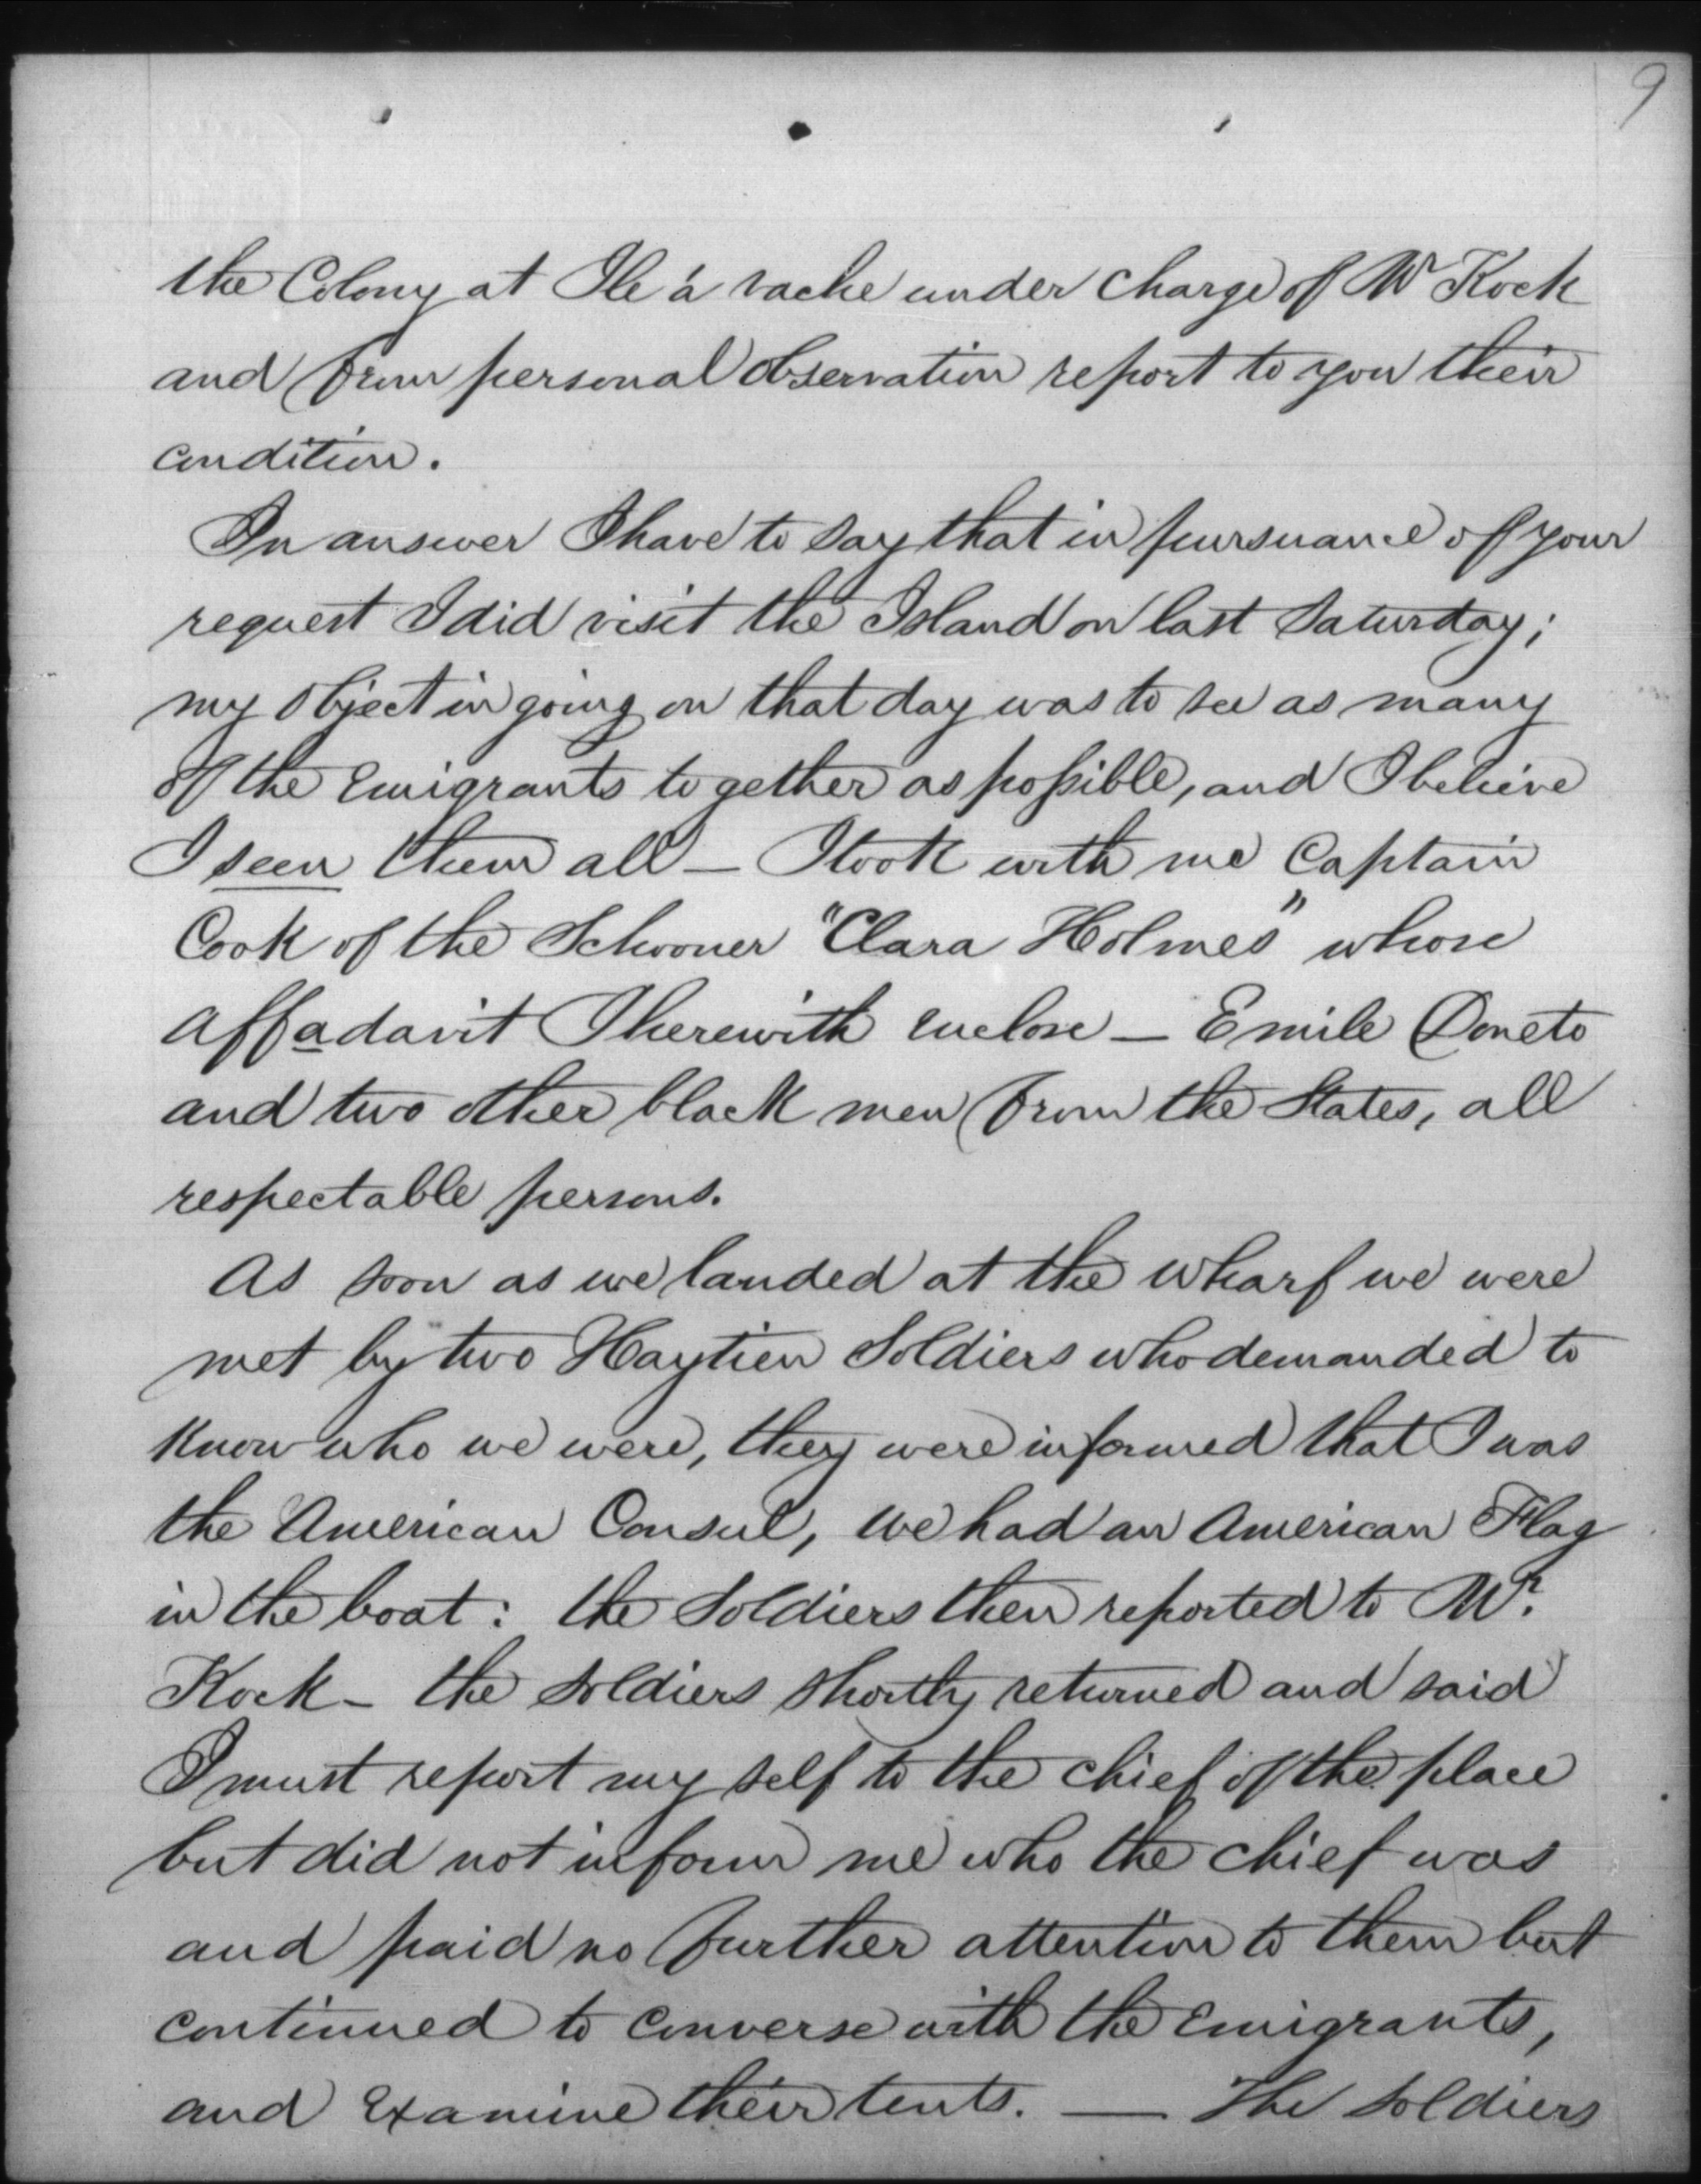 9
the Colony at Ile á vache under charge of Mr Kock
and from personal observation report to you their
condition.
In answer I have to say that in pursuance of your
request I did visit the Island on last Saturday;
my object in going on that day was to see as many
of the Emigrants together as possible, and I believe
I seen them all — I took with me Captain
Cook of the Schooner "Clara Holmes" whose
affadavit I herewith enclose — Emile Doneto
and two other black men from the States, all
respectable persons.
As soon as we landed at the wharf we were
met by two Haytien Soldiers who demanded to
know who we were, they were informed that I was
the American Consul, we had an American Flag
in the boat: the Soldiers then reported to Mr.
Kock — the Soldiers shortly returned and said
I must report my self to the chief of the place
but did not inform me who the chief was
and paid no further attention to them but
continued to converse with the Emigrants,
and Examine their tents. — The Soldiers